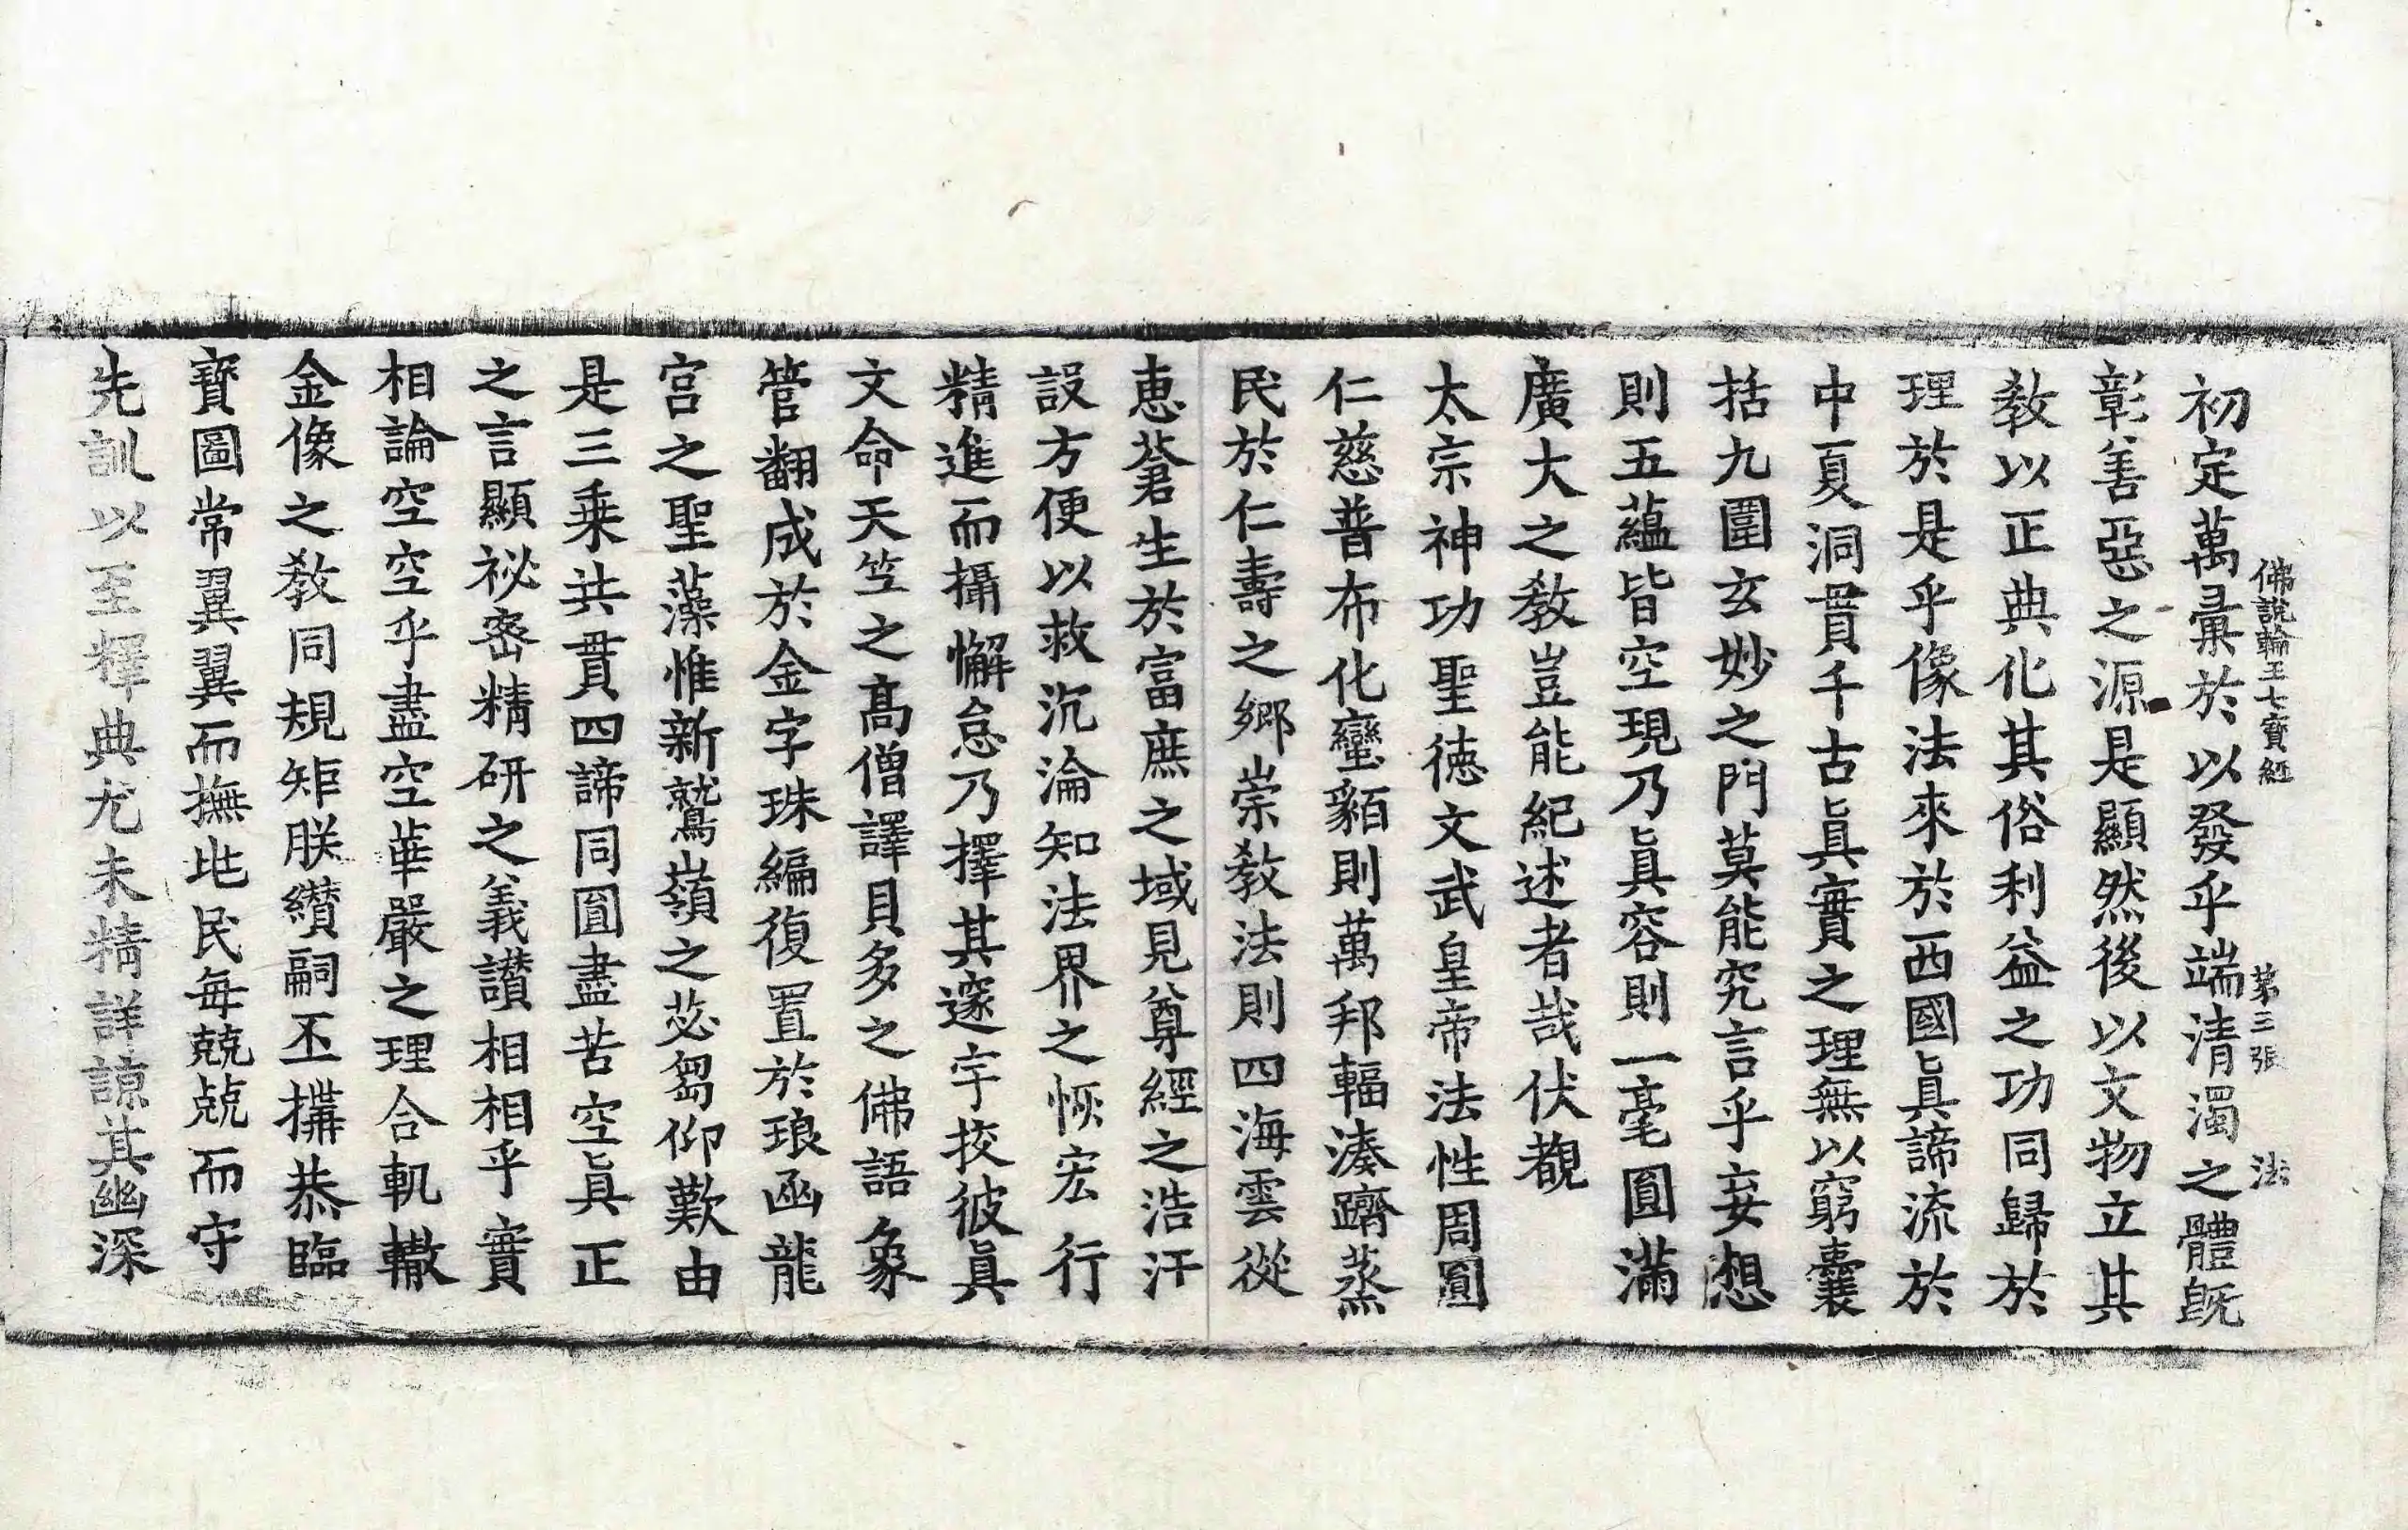 佛說輪王七寶經 第三張 法
初定萬彙於以發乎端清濁之體旣
彰善惡之源是顯然後以文物立其
敎以正典化其俗利益之功同歸於
理於是乎像法來於西國眞諦流於
中夏洞貫千古眞實之理無以窮囊
括九圍玄妙之門莫能究言乎妄想
則五蘊皆空現乃眞容則一毫圓滿
廣大之敎豈能紀述者哉伏覩
太宗神功聖德文武皇帝法性周圓
仁慈普布化蠻貊則萬邦輻湊躋蒸
民於仁壽之鄉崇敎法則四海雲從
惠蒼生於富庶之域見尊經之浩汗
設方便以救沉淪知法界之恢宏行
精進而攝懈怠乃擇其邃宇挍彼眞
文命天竺之高僧譯貝多之佛語象
管翻成於金字珠編復置於琅函龍
宮之聖藻惟新鷲嶺之苾芻仰歎由
是三乘共貫四諦同圓盡苦空眞正
之言顯祕密精硏之義讃相相乎實
相論空空乎盡空華嚴之理合軌轍
金像之敎同規矩朕纘嗣丕搆恭臨
寶圖常翼翼而撫地民每兢兢而守
先訓以至釋典尤未精詳諒其幽深